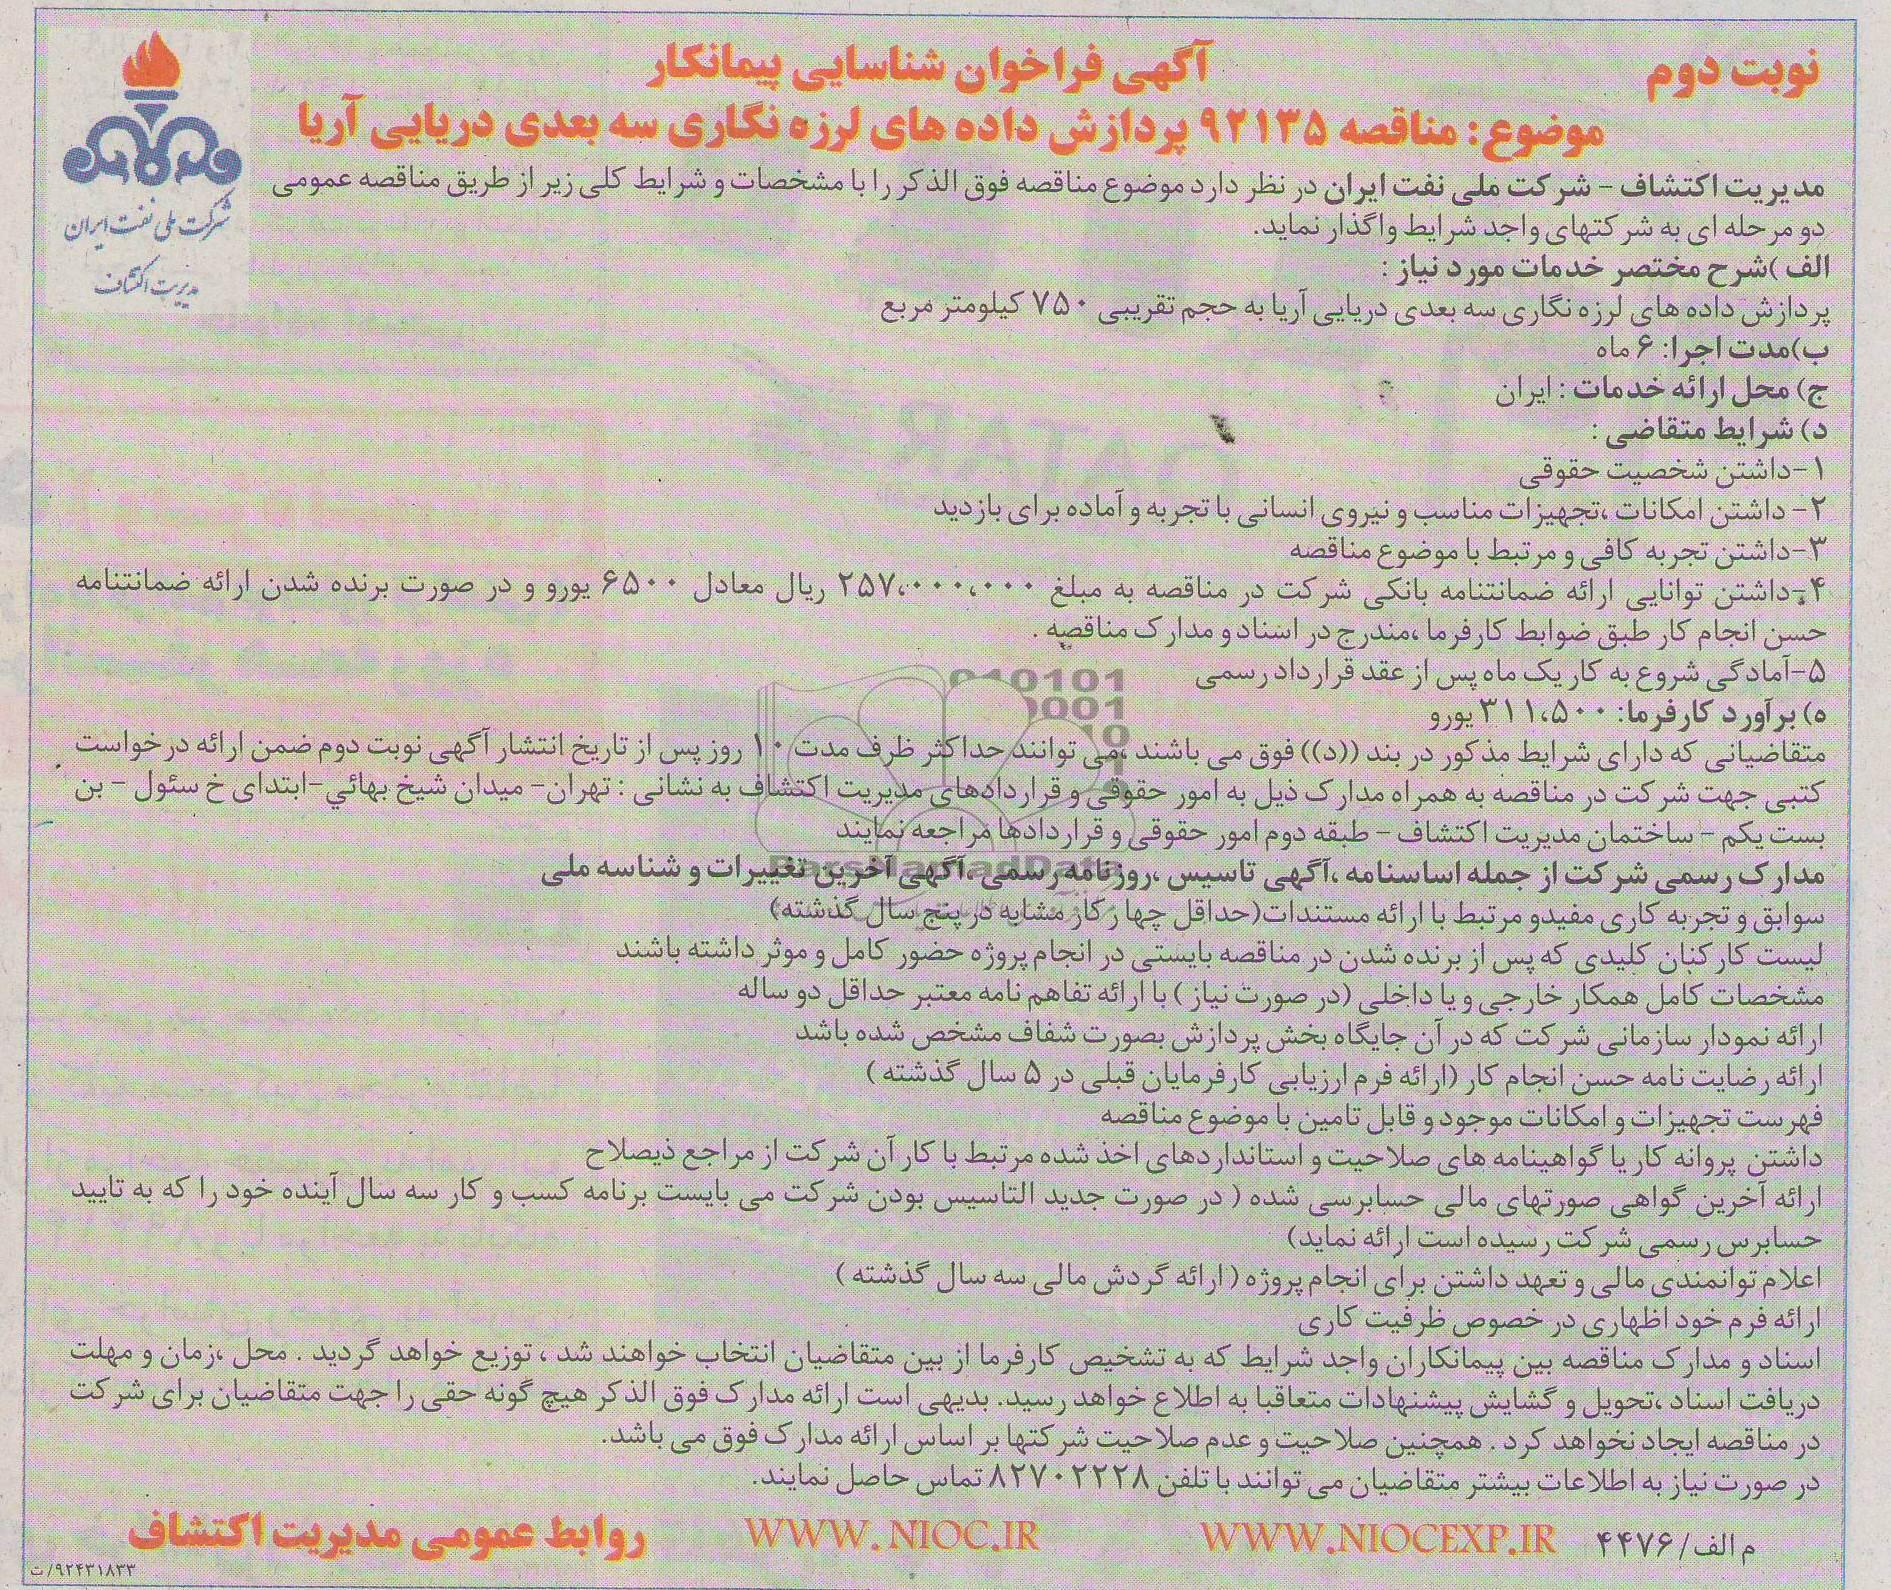 نوبت دوم
آگهی فراخوان شناسایی پیمانکار
موضوع: مناقصه ۹۲۱۳۵ پردازش داده های لرزه نگاری سه بعدی دریایی آریا
شرکت ملی نفت ایران
مدیریت اکتشاف
مدیریت اکتشاف - شرکت ملی نفت ایران در نظر دارد موضوع مناقصه فوق الذکر را با مشخصات و شرایط کلی زیر از طریق مناقصه عمومی
دو مرحله ای به شرکتهای واجد شرایط واگذار نماید.
الف )شرح مختصر خدمات مورد نیاز :
پردازش داده های لرزه نگاری سه بعدی دریایی آریا به حجم تقریبی ۷۵۰ کیلومتر مربع
ب)مدت اجرا: ۶ ماه
ج) محل ارائه خدمات : ایران
د) شرایط متقاضی :
۱-داشتن شخصیت حقوقی
۲- داشتن امکانات ،تجهیزات مناسب و نیروی انسانی با تجربه و آماده برای بازدید
۳-داشتن تجربه کافی و مرتبط با موضوع مناقصه
۴-داشتن توانایی ارائه ضمانتنامه بانکی شرکت در مناقصه به مبلغ ۲۵۷،۰۰۰،۰۰۰ ریال معادل ۶۵۰۰ یورو و در صورت برنده شدن ارائه ضمانتنامه
حسن انجام کار طبق ضوابط کارفرما ،مندرج در اسناد و مدارک مناقصه .
۵-آمادگی شروع به کار یک ماه پس از عقد قرارداد رسمی
ه) برآورد کارفرما: ۳۱۱،۵۰۰ یورو
متقاضیانی که دارای شرایط مذکور در بند ((د)) فوق می باشند ،می توانند حداکثر ظرف مدت ۱۰ روز پس از تاریخ انتشار آگهی نوبت دوم ضمن ارائه درخواست
کتبی جهت شرکت در مناقصه به همراه مدارک ذیل به امور حقوقی و قراردادهای مدیریت اکتشاف به نشانی : تهران- میدان شیخ بهائي-ابتدای خ سئول - بن
بست یکم - ساختمان مدیریت اکتشاف - طبقه دوم امور حقوقی و قراردادها مراجعه نمایند
مدارک رسمی شرکت از جمله اساسنامه ،آگهی تاسیس ،روزنامه رسمی ،آگهی آخرین تغییرات و شناسه ملی
سوابق و تجربه کاری مفیدو مرتبط با ارائه مستندات(حداقل چهار کار مشابه در پنج سال گذشته)
لیست کارکنان کلیدی که پس از برنده شدن در مناقصه بایستی در انجام پروژه حضور کامل و موثر داشته باشند
مشخصات کامل همکار خارجی و یا داخلی (در صورت نیاز ) با ارائه تفاهم نامه معتبر حداقل دو ساله
ارائه نمودار سازمانی شرکت که در آن جایگاه بخش پردازش بصورت شفاف مشخص شده باشد
ارائه رضایت نامه حسن انجام کار (ارائه فرم ارزیابی کارفرمایان قبلی در ۵ سال گذشته )
فهرست تجهیزات و امکانات موجود و قابل تامین با موضوع مناقصه
داشتن پروانه کار یا گواهینامه های صلاحیت و استانداردهای اخذ شده مرتبط با کار آن شرکت از مراجع ذیصلاح
ارائه آخرین گواهی صورتهای مالی حسابرسی شده ( در صورت جدید التاسیس بودن شرکت می بایست برنامه کسب و کار سه سال آینده خود را که به تایید
حسابرس رسمی شرکت رسیده است ارائه نماید)
اعلام توانمندی مالی و تعهد داشتن برای انجام پروژه ( ارائه گردش مالی سه سال گذشته )
ارائه فرم خود اظهاری در خصوص ظرفیت کاری
اسناد و مدارک مناقصه بین پیمانکاران واجد شرایط که به تشخیص کارفرما از بین متقاضیان انتخاب خواهند شد ، توزیع خواهد گردید . محل ،زمان و مهلت
دریافت اسناد ،تحویل و گشایش پیشنهادات متعاقبا به اطلاع خواهد رسید. بدیهی است ارائه مدارک فوق الذکر هیچ گونه حقی را جهت متقاضیان برای شرکت
در مناقصه ایجاد نخواهد کرد . همچنین صلاحیت و عدم صلاحیت شرکتها بر اساس ارائه مدارک فوق می باشد.
در صورت نیاز به اطلاعات بیشتر متقاضیان می توانند با تلفن ۸۲۷۰۲۲۲۸ تماس حاصل نمایند.
م الف/۴۴۷۶ WWW.NIOCEXP.IR WWW.NIOC.IR روابط عمومی مدیریت اکتشاف
۹۲۴۳۱۸۳۳/ت
ParsNamadData